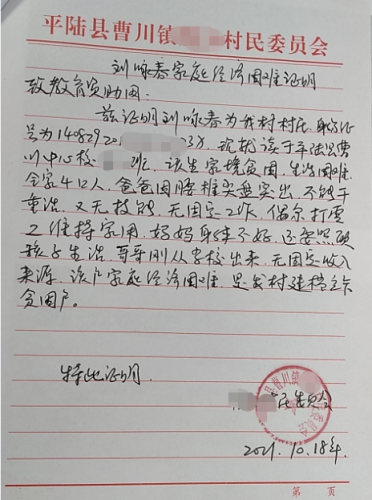 平陆县曹川镇 村民委员会
刘咏春家庭经济困难证明
致教育资助网:
兹证明刘咏春为我村村民 身份证
号为14082920 03X. 现就读于平陆县曹
川中心校 班. 该生家境贫困. 生活困难
全家4口人, 爸爸因腰椎间盘突出 不能干
重活. 又无技能. 无固定工作. 偶尔打零
工维持家用. 妈妈身体不好. 还要照顾
孩子生活. 哥哥刚从学校出来. 无固定收入
来源. 该户家庭经济困难. 是我村建档立卡
贫困户.
特此证明.
委员会
2021.10.18年.
第 页